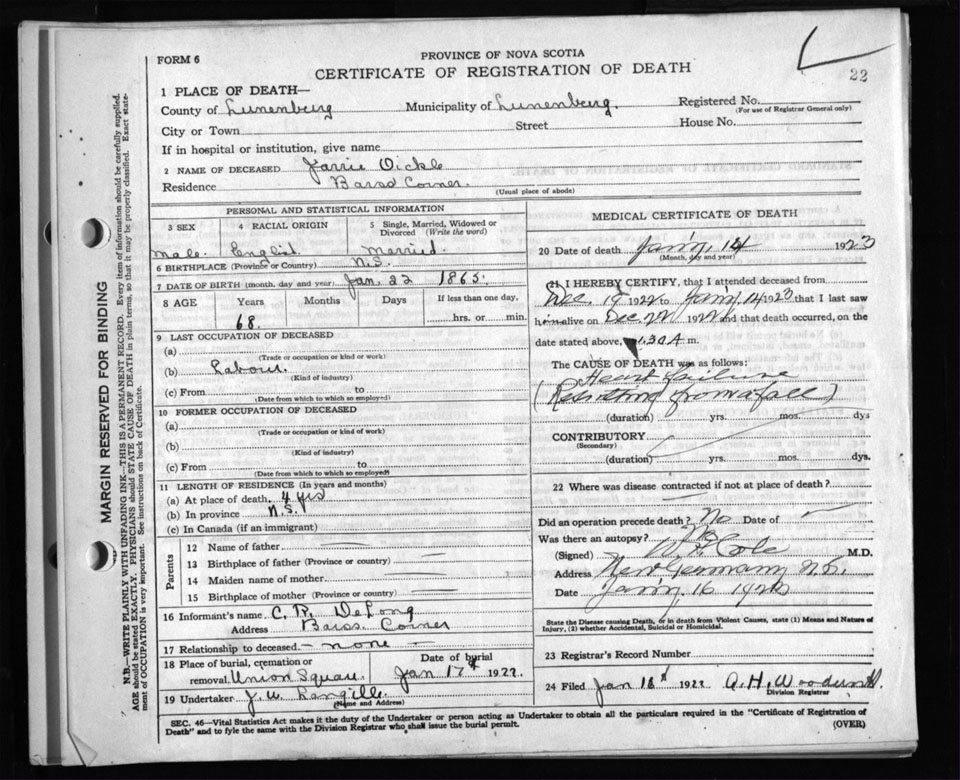 FORM 6
PROVINCE OF NOVA SCOTIA
CERTIFICATE OF REGISTRATION OF DEATH
22
1 PLACE OF DEATH—
County of Lunenberg Municipality of Lunenberg. Registered No.
(For use of Registrar General only)
City or Town Street House No.
If in hospital or institution, give name
2 NAME OF DECEASED Oickle
Residence Barss Corner.
(Usual place of abode)
PERSONAL AND STATISTICAL INFORMATION
3 SEX 4 RACIAL ORIGIN 5 Single, Married, Widowed or Divorced (Write the word)
Male. English Married.
6 BIRTHPLACE (Province or Country) N.S.
7 DATE OF BIRTH (month, day and year) Jan. 22 1865.
8 AGE Years Months Days If less than one day,
68. hrs. or min.
9 LAST OCCUPATION OF DECEASED
(a)
(Trade or occupation or kind of work)
(b) Labour.
(Kind of industry)
(c) From to
(Date from which to which so employed)
10 FORMER OCCUPATION OF DECEASED
(a)
(Trade or occupation or kind of work)
(b)
(Kind of industry)
(c) From to
(Date from which to which so employed)
11 LENGTH OF RESIDENCE (In years and months)
(a) At place of death, 4 yrs
(b) In province N.S.
(c) In Canada (if an immigrant)
Parents
12 Name of father
13 Birthplace of father (Province or country)
14 Maiden name of mother
15 Birthplace of mother (Province or country)
16 Informant's name C. R. DeLong
Address Barss Corner
17 Relationship to deceased - none
18 Place of burial, cremation or removal, Union Square Date of burial Jan 17th 1922.
19 Undertaker J. W. Langille
(Name and Address)
MEDICAL CERTIFICATE OF DEATH
20 Date of death Jan'y. 14 1923
(Month, day and year)
21 I HEREBY CERTIFY, that I attended deceased from
Dec. 19 1922 to Jan'y 14 1923 that I last saw
him alive on Dec. 22 1922 and that death occurred, on the
date stated above, 1.30 A m.
The CAUSE OF DEATH was as follows:
Heart failure
(Resulting from a fall)
(duration) yrs. mos. dys
CONTRIBUTORY
(Secondary)
(duration) yrs. mos. dys.
22 Where was disease contracted if not at place of death?
Did an operation precede death? No Date of
Was there an autopsy? No
(Signed) W. H. Cole M.D.
Address New Germany N.S.
Date Jan'y 16
State the Disease causing Death, or in death from Violent Causes, state (1) Means and Nature of Injury, (2) whether Accidental, Suicidal or Homicidal.
23 Registrar's Record Number
24 Filed Jan 16th 1922 A. H.
Division Registrar
SEC. 46—Vital Statistics Act makes it the duty of the Undertaker or person acting as Undertaker to obtain all the particulars required in the "Certificate of Registration of
Death" and to fyle the same with the Division Registrar who shall issue the burial permit.
(OVER)
MARGIN RESERVED FOR BINDING
N.B.—WRITE PLAINLY WITH UNFADING INK—THIS IS A PERMANENT RECORD. Every item of information should be carefully supplied.
AGE should be stated EXACTLY. PHYSICIANS should STATE CAUSE OF DEATH in plain terms, so that it may be properly classified. Exact state-
ment of OCCUPATION is very important. See instructions on back of Certificate.